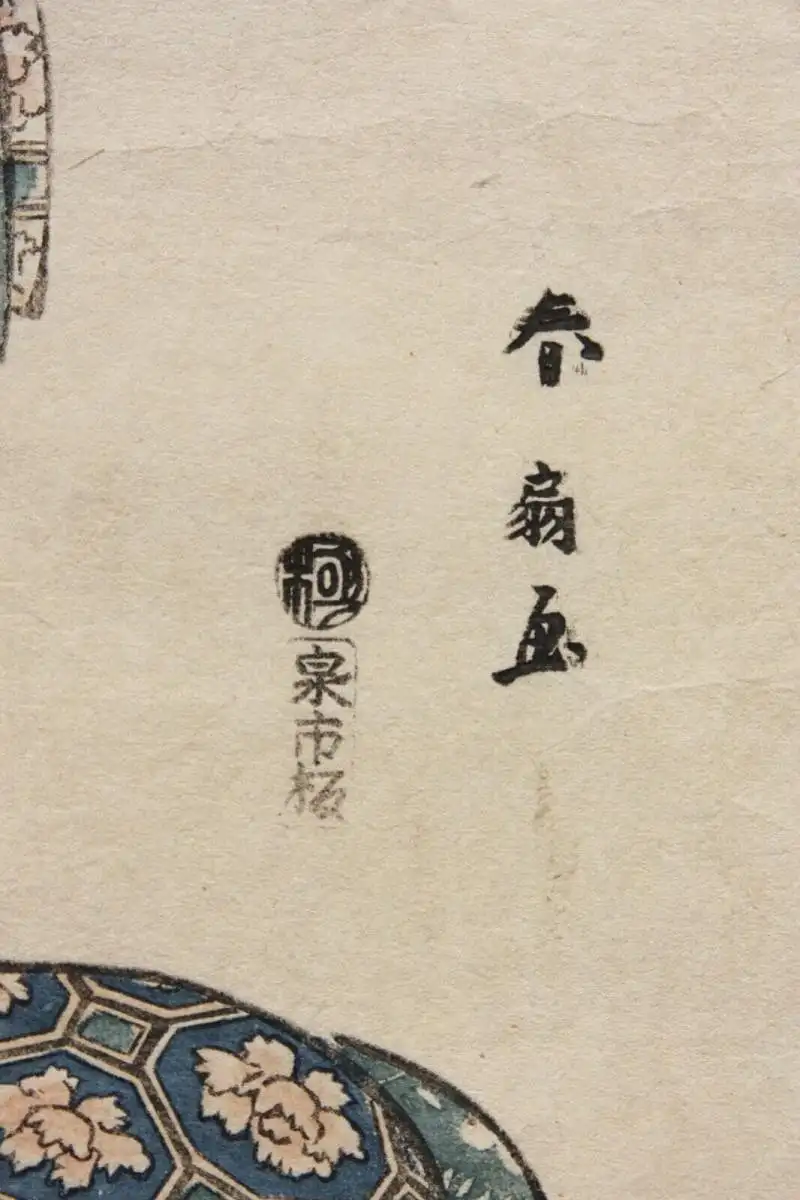 春扇画
極
泉市板